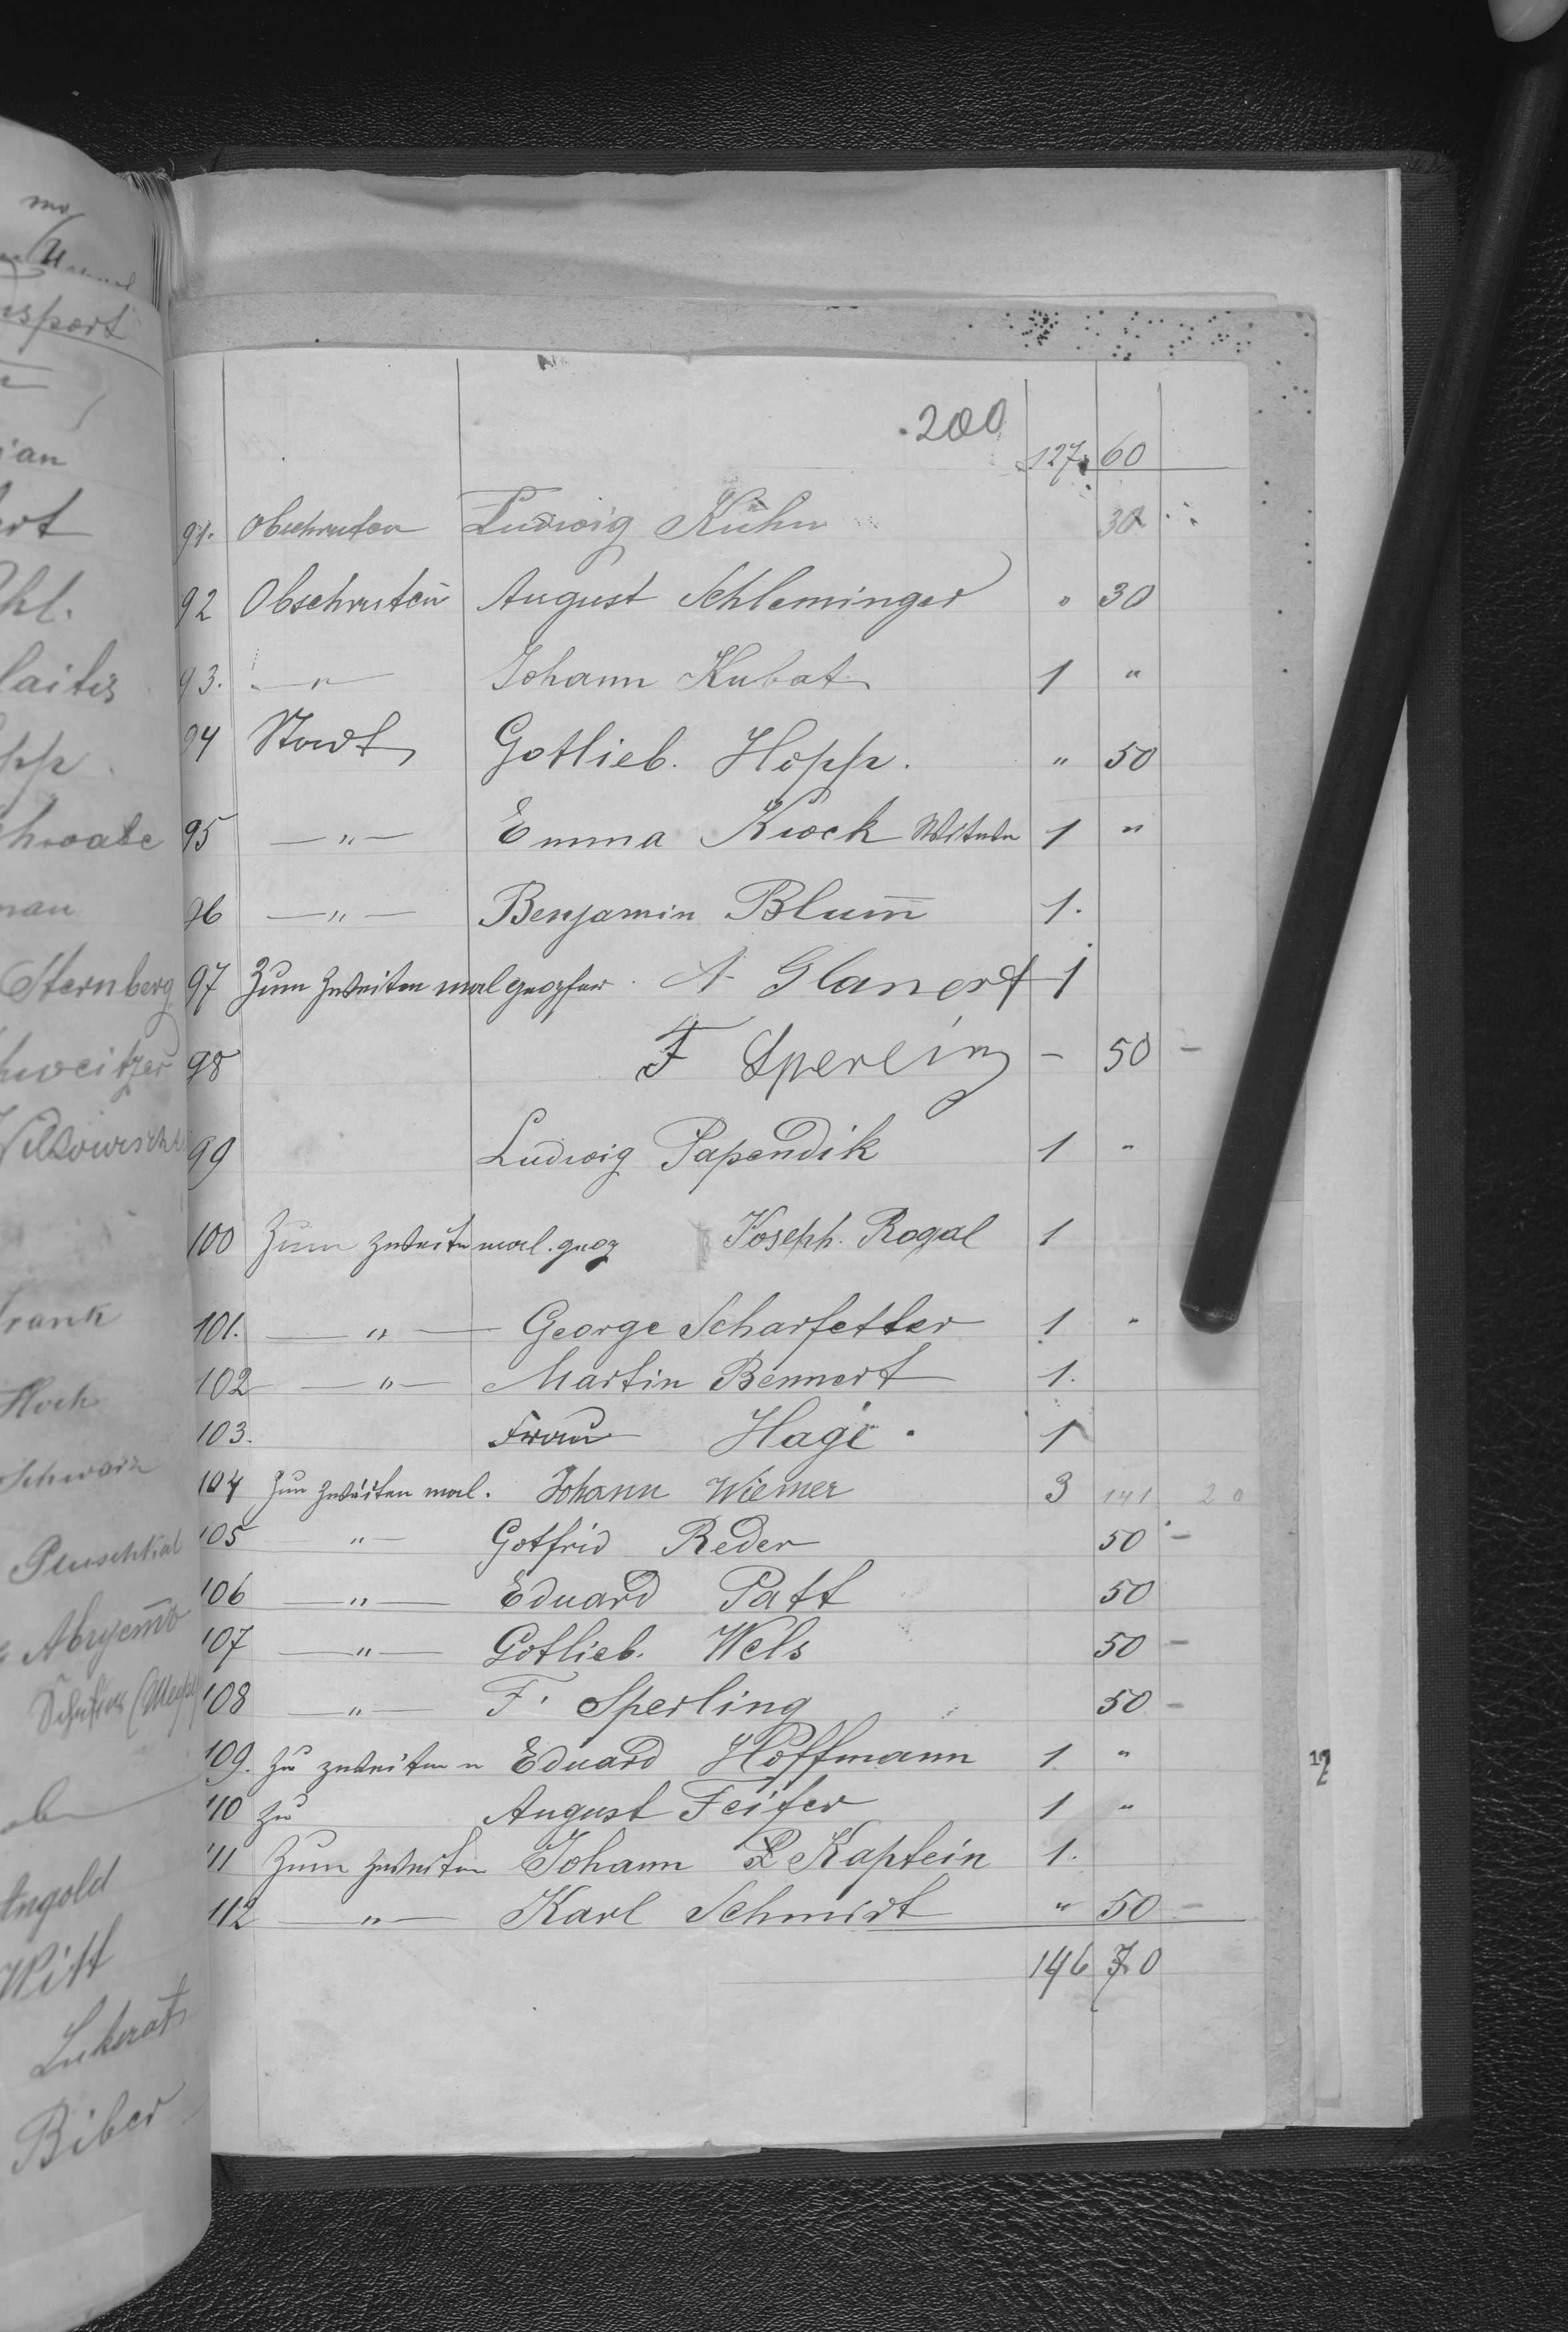 200
127 60
91. Obschruten Ludwig Kühn 30
92 Obschruten August Schleminger " 30
93. — " — Johann Kubat 1 "
94 Stadt Gotlieb. Hopp. " 50
95 — " — Emma Kwock Witwe 1 "
96 — " — Benjamin Blum̅ 1.
97 Zum zweiten mal A Glanert 1
98 F Sperling — 50 —
99 Ludwig Papendik 1 "
100 Zum zweiten mal. Joseph. Rogal 1
101. — " — George Scharfetter 1 "
102 — " — Martin Bennert 1.
103. Frau Hage. 1
104 Zum zweiten mal. Johann Wiemer 3 141 20
105 " — Gotfrid Reder 50 —
106 — " — Eduard Patt 50
107 — " — Gotlieb. Wels 50 —
108 — " — F. Sperling 50 —
109. Zu zweiten " Eduard Hoffmann 1 "
110 Zu August Feifer 1 "
111 Zum zweiten Johann Kaptein 1.
112 — " — Karl Schmidt " 50 —
146 70
Sternberg
Angold
Witt
Lukerat
Biber